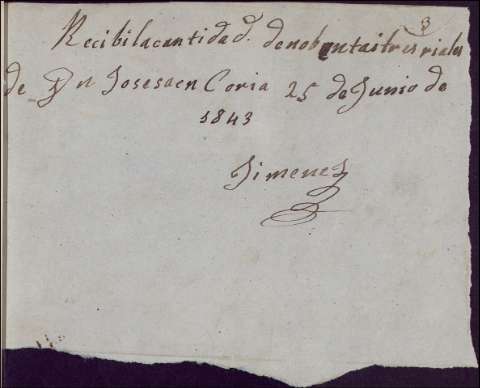 3
Recibi la cantidad de nobentaitres riales
de Dn Jose saen Coria 25 de Junio de
1843
Jimenez